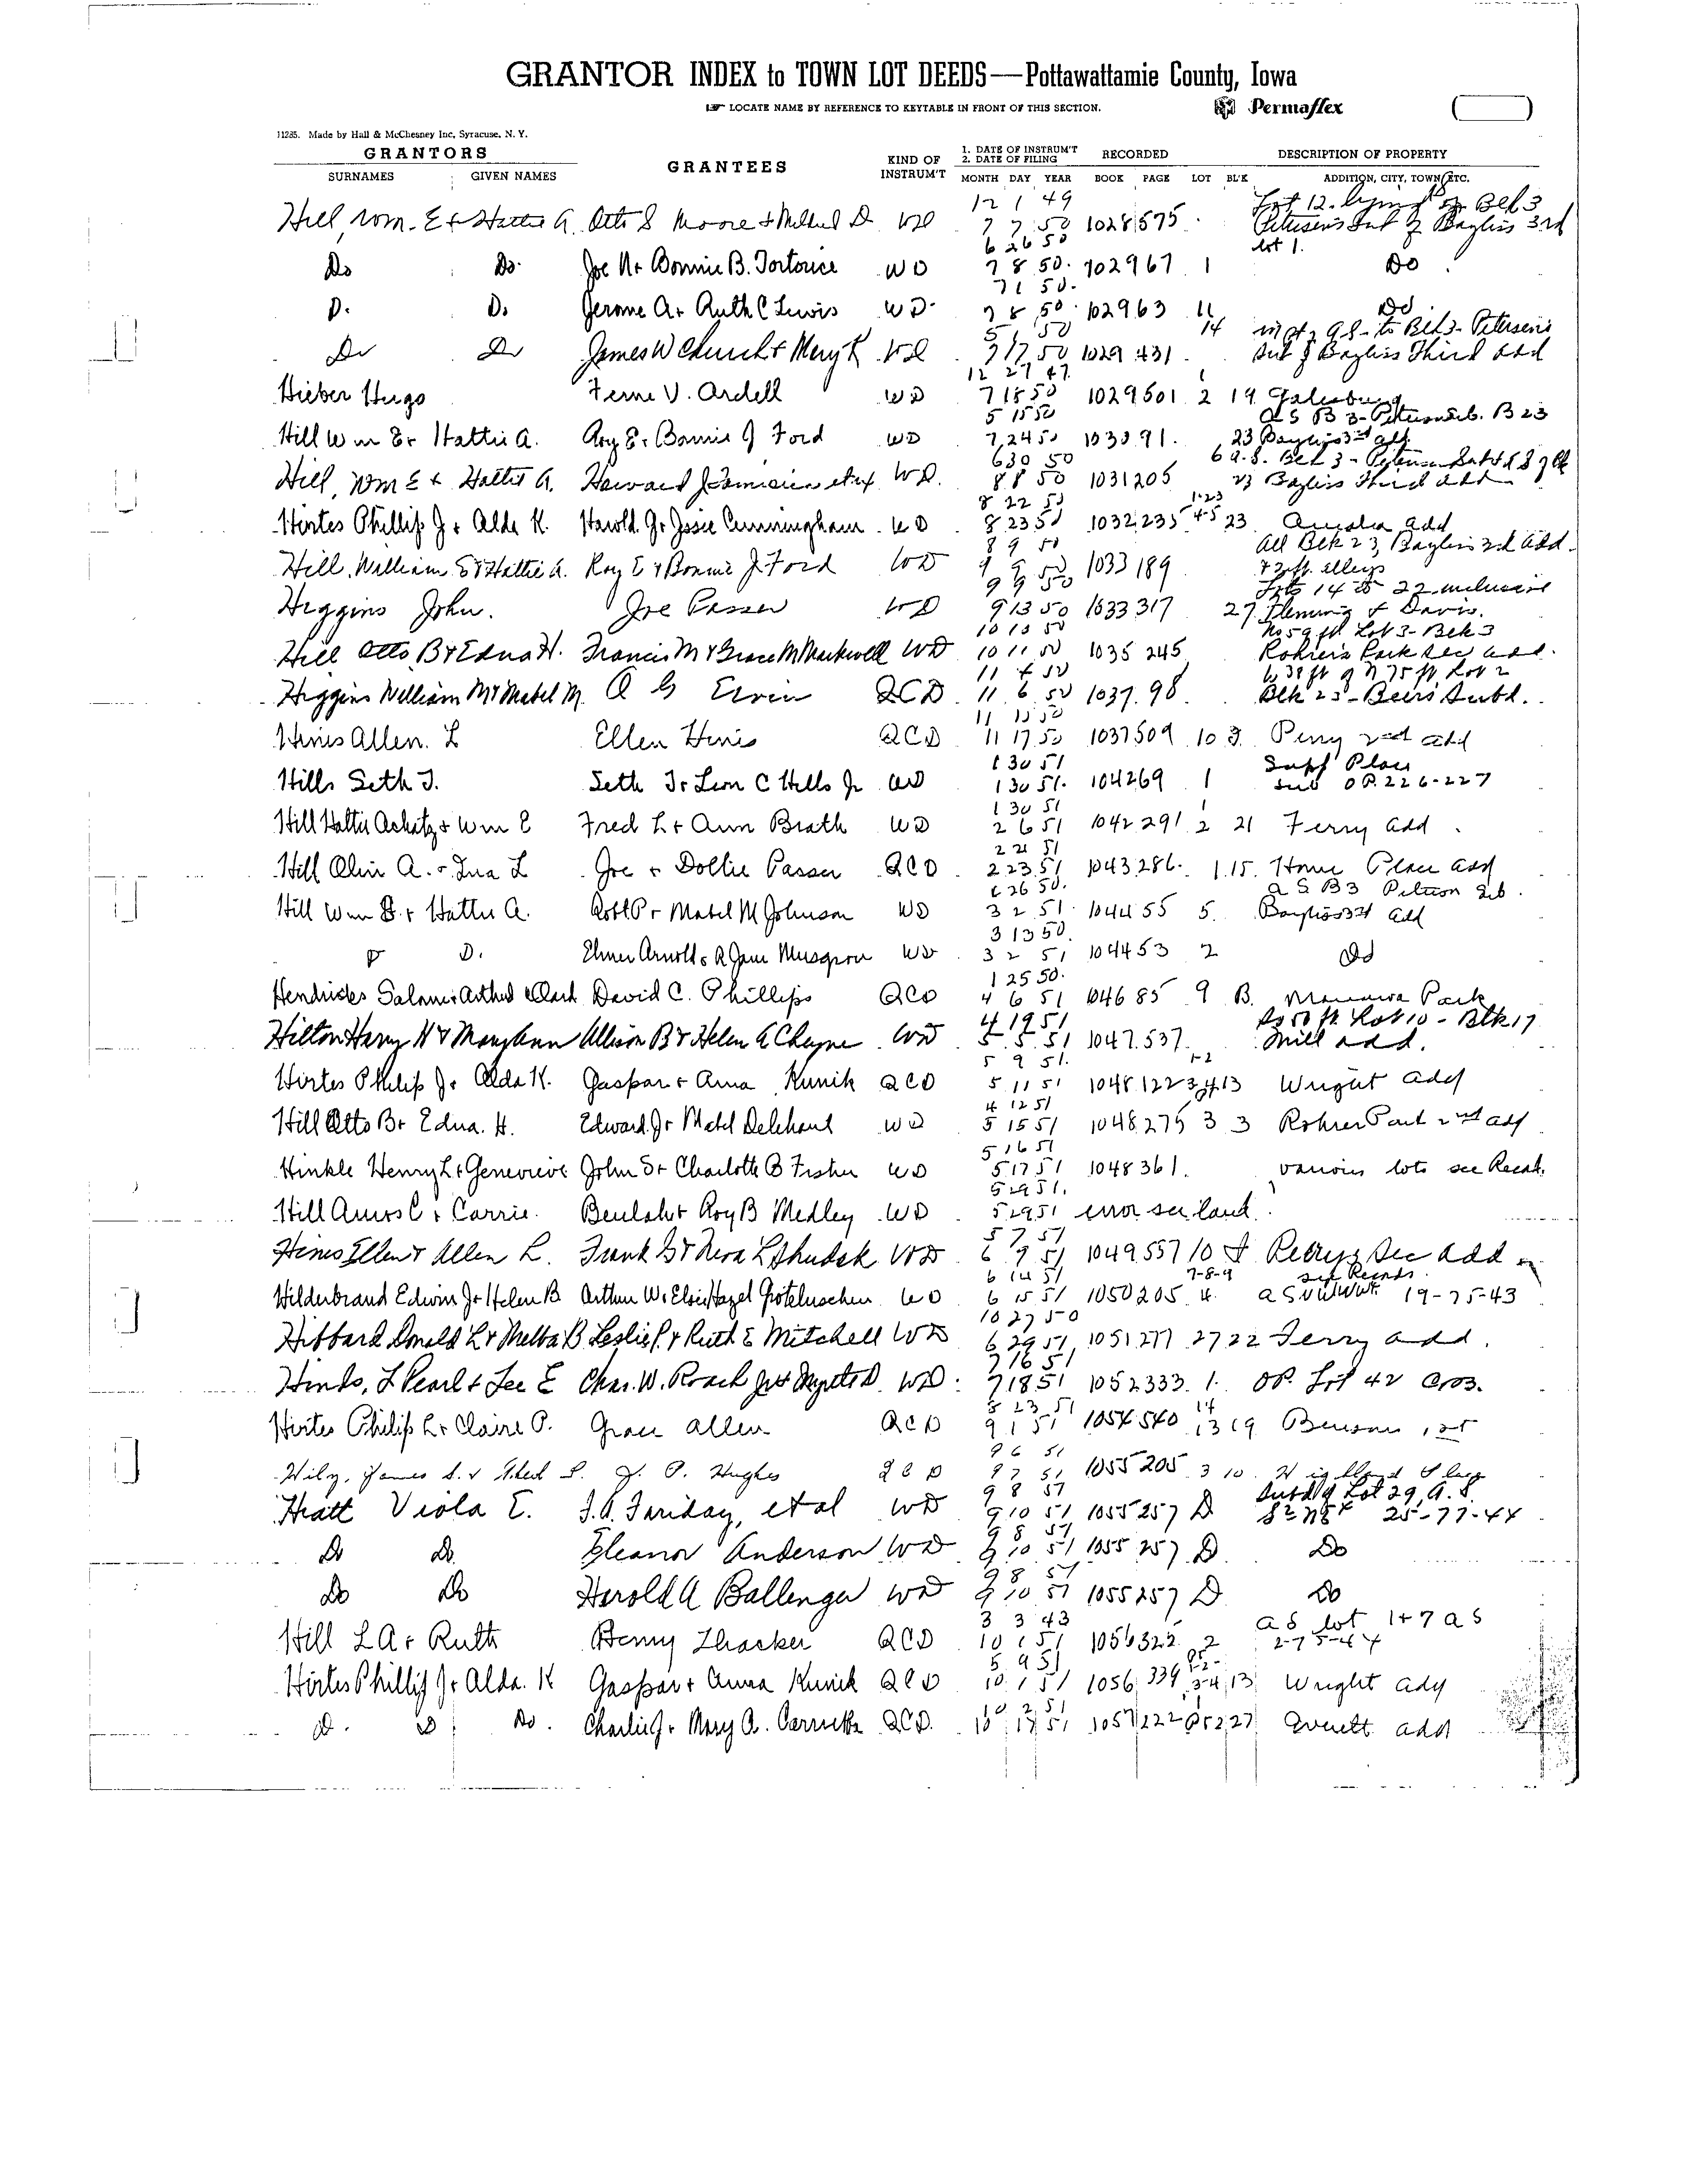 GRANTOR INDEX to TOWN LOT DEEDS—Pottawattamie County, Iowa
LOCATE NAME BY REFERENCE TO KEYTABLE IN FRONT OF THIS SECTION.
Permaflex
11285. Made by Hall & McChesney Inc, Syracuse, N. Y.
GRANTORS GRANTEES KIND OF INSTRUM'T 1. DATE OF INSTRUM'T 2. DATE OF FILING RECORDED DESCRIPTION OF PROPERTY
SURNAMES GIVEN NAMES MONTH DAY YEAR BOOK PAGE LOT BL'K ADDITION, CITY, TOWN, ETC.
12 1 49 Lot 12. lying Blk 3
Hill, Wm. E + Hattie A. Otto S Moore + Mildred D. WD 7 7 50 1028 575 Petersen's Sub of Bayliss 3rd
6 26 50 lot 1.
Do Do Joe N + Bonnie B. Tortorice WD 7 8 50 1029 67 1 Do
7 1 50
Do Do Jerome A + Ruth C Lewis WD 7 8 50 1029 63 11 Do
5 1 50 14 in pt of A.S. to Blk 3 Petersen's
Do Do James W Church + Mary K WD 7 17 50 1029 431 Sub of Bayliss Third Add
12 27 47 1
Hieber Hugo Ferne V. Ardell WD 7 18 50 1029 501 2 19 Galesburg
5 15 50 A S B 3 - Peterson Sub. B 23
Hill Wm E + Hattie A. Roy E + Bonnie J Ford WD 7 24 50 1030 91 23 Bayliss 3rd add
6 30 50 6 A.S. Blk 3 - Petersen Sub
Hill, Wm E + Hattie A. Howard J WD 8 8 50 1031 205 23 Bayliss Third Add
8 22 50 1-23
Hirtes Phillip J + Alda K. Harold G + Jessie Cunningham WD 8 23 50 1032 235 4-5 23 Amelia Add
8 9 50 All Blk 23, Bayliss 3rd Add.
Hill, William E + Hattie A. Roy E + Bonnie J. Ford WD 9 9 50 1033 189
9 9 50 Lots 14 to 22 inclusive
Higgins John. Joe Passer WD 9 13 50 1033 317 27 Fleming & Davis.
10 10 50 No 59 ft Lot 3 - Blk 3
Hill Otto B + Edna H. Francis M + Grace M Markwell WD 10 11 50 1035 245 Rohrer's Park Sec Add.
11 4 50 W 38 ft of N 75 ft Lot 2
Higgins William M + Mabel M. A G Ervin QCD 11 6 50 1037 98 Blk 23 - Beers Subd.
11 15 50
Hines Allen. L Ellen Hines QCD 11 17 50 1037 509 10 J Perry 2nd add
1 30 51 Supp Place
Hills Seth J. Seth J + Leon C Hills Jr WD 1 30 51 1042 69 1 Sub O.P. 226-227
1 30 51 1
Hill Hattie Achatz + Wm E Fred L + Ann Brath WD 2 6 51 1042 291 2 21 Ferry Add
2 21 51
Hill Olin A. + Ina L Joe + Dollie Passer QCD 2 23 51 1043 286 1 15 Home Place Add
6 26 50 A S B 3 Peterson Sub.
Hill Wm E + Hattie A. Robt P + Mabel M Johnson WD 3 2 51 1044 55 5 Bayliss 3rd Add
3 13 50
D D. Elmer Arnold + R Jane Musgrove WD 3 2 51 1044 53 2 Do
1 25 50
David C. Phillips QCD 4 6 51 1046 85 9 B. Manawa Park
4 19 51 So 50 ft Lot 10 - Blk 17
Hilton Harry N + Mary Ann Allison B + Helen A Cheyne WD 5 5 51 1047 537 Mill Add.
5 9 51 1-2
Hirtes Philip J + Alda K. Gaspar + Anna Kunik QCD 5 11 51 1048 122 3+4 13 Wright Add
4 12 51
Hill Otto B + Edna. H. Edward J + Mabel Delehant WD 5 15 51 1048 275 3 3 Rohrer Park 2nd Add
5 16 51
Hinkle Henry L + Genevieve John S + Charlotte B Fisher WD 5 17 51 1048 361 various lots see Record.
5 29 51
Hill Amos C + Carrie. Beulah + Roy B Medley WD 5 29 51 error see land
5 7 51
Hines Ellen + Allen L. Frank G + Neva L WD 6 7 51 1049 557 10 J Perrys Sec Add
6 14 51 7-8-9 see Records
Hilderbrand Edwin J + Helen B Arthur W + Elsie Hazel Goteluschen WD 6 15 51 1050 205 4 19-75-43
10 27 50
Hibbard Donald L + Melba B Leslie P. + Ruth E Mitchell WD 6 29 51 1051 277 27 22 Ferry Add.
7 16 51
Hinds, L Pearl + Lee E Chas. W. Roach Jr + Myrtle D. WD 7 18 51 1052 333 1 O.P. Lot 42 Cros.
8 23 51 14
Hirtes Philip L + Claire P. Grace Allen QCD 9 1 51 1054 540 13 19 Benson 1st
9 6 51
James S. + J. P. Hughes QCD 9 7 51 1055 205 3 10 Highland Place
9 8 51 Subd of Lot 29, A.S.
Hiatt Viola E. Fariday, et al WD 9 10 51 1055 257 D 25-77-44
9 8 51
Do Do Eleanor Anderson WD 9 10 51 1055 257 D Do
9 8 51
Do Do Harold A Ballenger WD 9 10 51 1055 257 D Do
3 3 43 A S lot 1+7 A S
Hill L A + Ruth Benny Thacker QCD 10 1 51 1056 322 2 2-75-44
5 9 51 1-2-
Hirtes Phillip J + Alda. K Gaspar + Anna Kunik QCD 10 1 51 1056 339 3-4 13 Wright Add
10 2 51
D. D Do. Charlie J + Mary A. QCD 10 17 51 1057 222 27 Everett Add